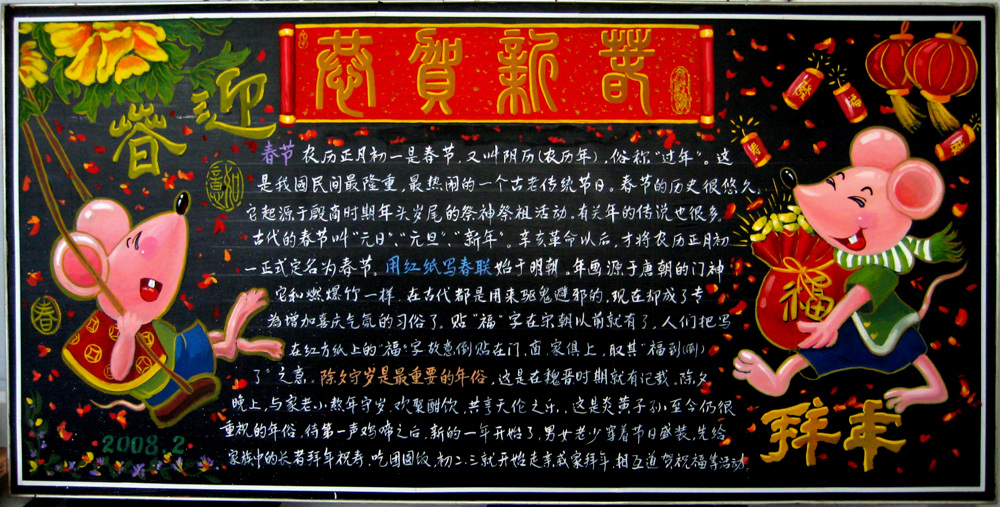 恭贺新春
迎
春
如意
春
福
拜年
春节 农历正月初一是春节，又叫阴历(农历年)，俗称“过年”。这
是我國民间最隆重，最热闹的一个古老传统节日。春节的历史很悠久，
它起源于殷商时期年头岁尾的祭神祭祖活动。有关年的传说也很多。
古代的春节叫“元日”、“元旦”、“新年”。辛亥革命以后，才将农历正月初
一正式定名为春节。用红纸写春联始于明朝。年画源于唐朝的门神
它和燃爆竹一样，在古代都是用来驱鬼避邪的，现在却成了专
为增加喜庆气氛的习俗了。贴“福”字在宋朝以前就有了，人们把写
在红方纸上的“福”字故意倒贴在门，窗，家俱上，取其“福到(倒)
了”之意，除夕守岁是最重要的年俗，这是在魏晋时期就有记载，除夕
晚上，与家老小熬年守岁，欢聚酣饮，共享天伦之乐，这是炎黄子孙至今仍很
重视的年俗，待第一声鸡啼之后，新的一年开始了，男女老少穿着节日盛装，先给
家族中的长者拜年祝寿，吃团圆饭，初二、三就开始走亲戚家拜年，相互道贺祝福等活动。
2008.2